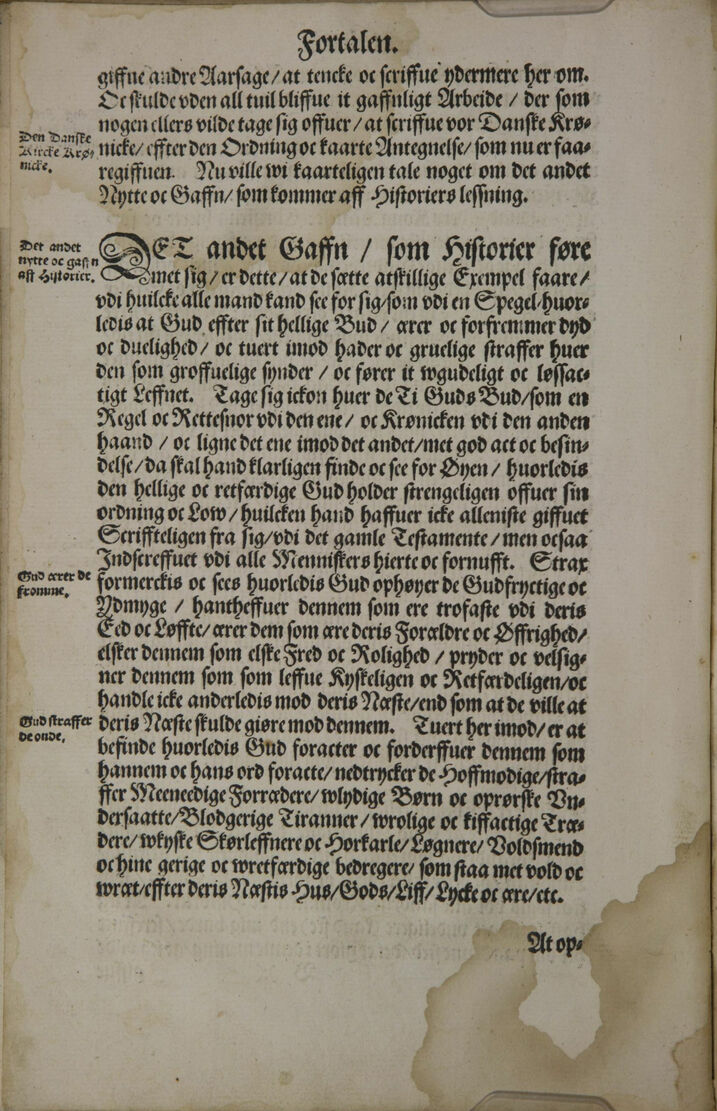 Fortalen.
giffue andre Aarsage/ at tencke oc scriffue ydermere her om.
Oc skulde vden all tuil bliffue it gaffnligt Arbeide / der som
nogen ellers vilde tage sig offuer/ at scriffue vor Danske Krø-
Den Danske
Kircke Krø-
nicke.
nicke/ effter den Ordning oc kaarte Antegnelse/ som nu er faa-
regiffuen. Nu ville wi kaarteligen tale noget om det andet
Nytte oc Gaffn/ som kommer aff Historiers lessning.
Det andet
nytte oc gaffn
aff Historier.
DET andet Gaffn / som Historier føre
met sig/ er dette/ at de sætte atskillige Exempel faare/
vdi huilcke alle mand kand see for sig/som vdi en Spegel/huor-
ledis at Gud effter sit hellige Bud/ ærer oc forfremmer dyd
oc duelighed/ oc tuert imod hader oc gruelige straffer huer
den som groffuelige synder / oc fører it wgudeligt oc løssac-
tigt Leffnet. Tage sig ickon huer de Ti Guds Bud/som en
Regel oc Rettesnor vdi den ene/ oc Krønicken vdi den anden
haand / oc ligne det ene imod det andet/met god act oc besin-
delse/da skal hand klarligen finde oc see for Øyen/ huorledis
den hellige oc retfærdige Gud holder strengeligen offuer sin
ordning oc Low/ huilcken hand haffuer icke alleniste giffuet
Scriffteligen fra sig/vdi det gamle Testamente/ men ocsaa
Indscreffuet vdi alle Menniskers hierte oc fornufft. Strax
Gud ærer de
fromme.
formerckis oc sees huorledis Gud ophøyer de Gudfryctige oc
Ydmyge / hantheffuer dennem som ere trofaste vdi deris
Eed oc Løffte/ ærer dem som ære deris Forældre oc Øffrighed/
elsker dennem som elske Fred oc Rolighed / pryder oc velsig-
ner dennem som som leffue Kyskeligen oc Retfærdeligen/oc
handle icke anderledis mod deris Næste/end som at de ville at
Gud straffer
de onde.
deris Næste skulde giøre mod dennem. Tuert her imod/ er at
befinde huorledis Gud foracter oc forderffuer dennem som
hannem oc hans ord foracte/ nedtrycker de Hoffmodige/stra-
ffer Meeneedige Forrædere/ wlydige Børn oc oprørske Vn-
dersaatte/Blodgerige Tiranner/ wrolige oc kiffactige Træ-
dere/ wkyske Skørleffnere oc Horkarle/ Løgnere/ Voldsmend
oc hine gerige oc wretfærdige bedregere/ som staa met vold oc
wræt/effter deris Næstis Hus/Gods/Liff/ Lycke oc ære/etc.
At op-